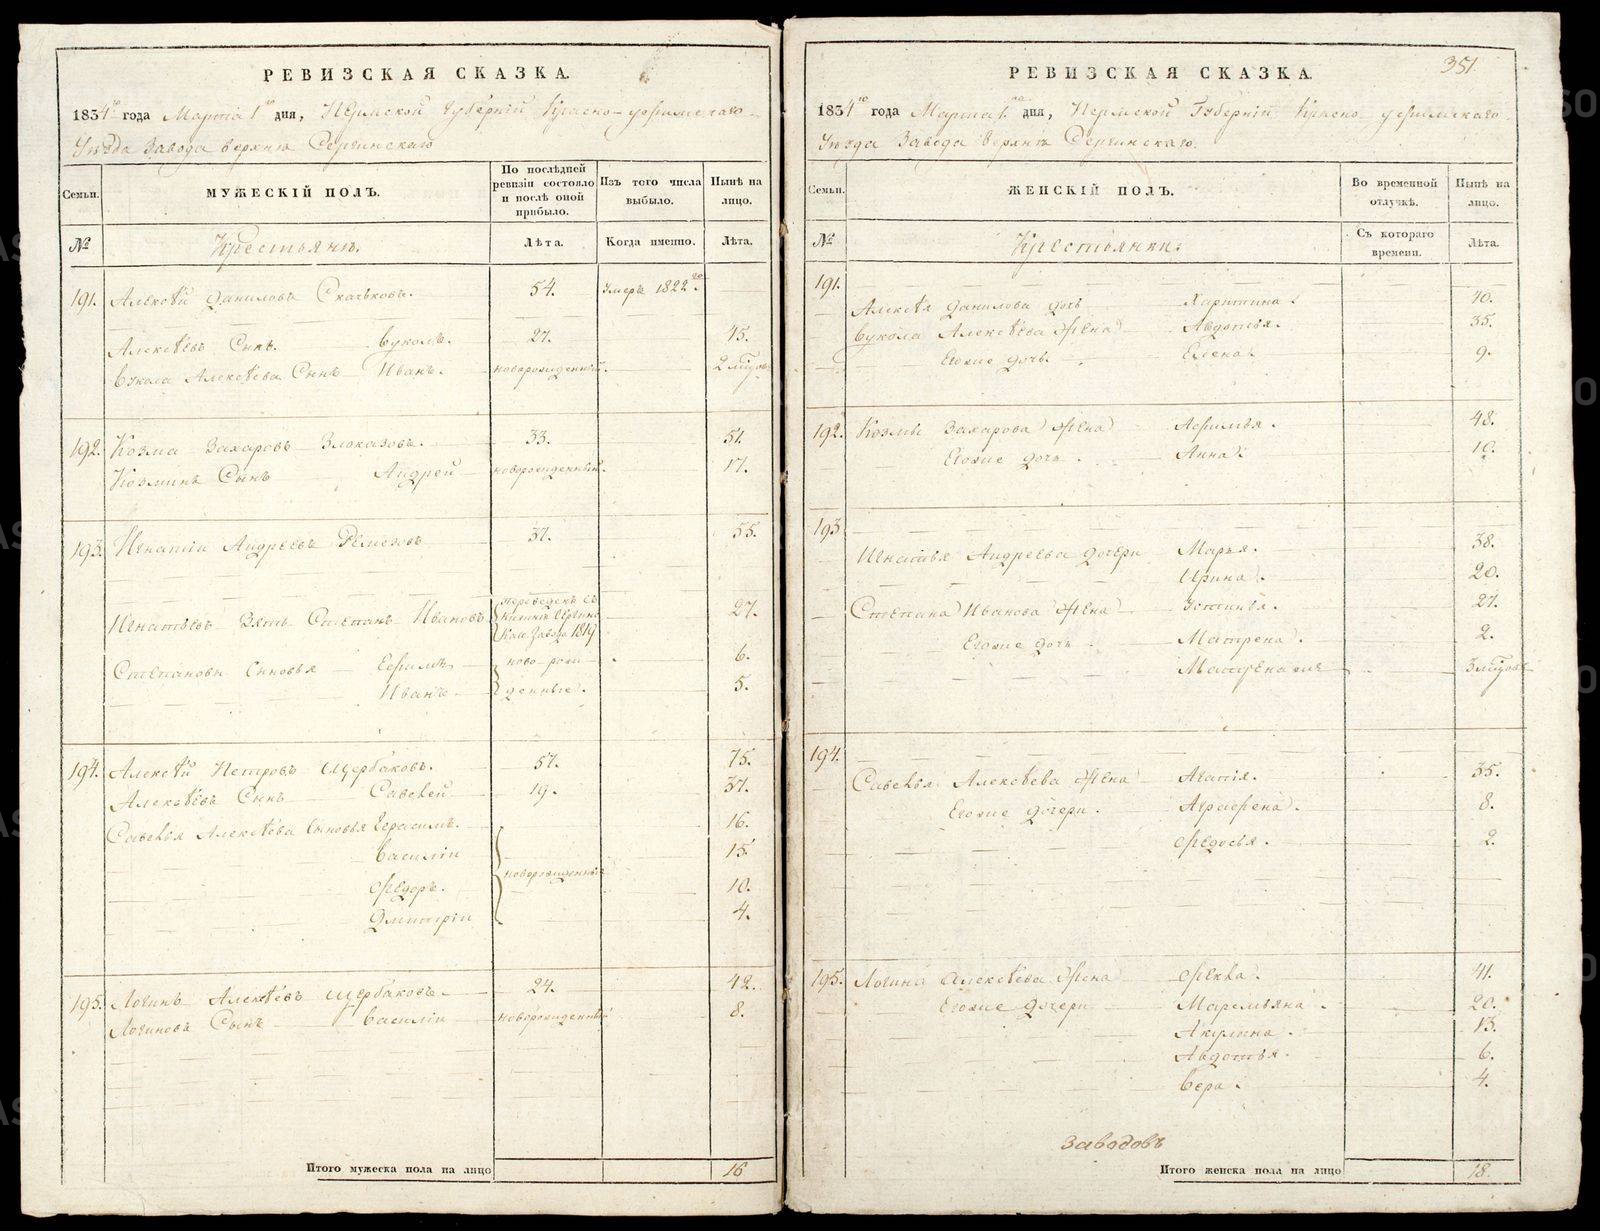 РЕВИЗСКАЯ СКАЗКА.
1834го года Марта 1го дня, Пермской Губернiи Красно-уфимскаго
Уѣзда Завода верхнѣ Сергинскаго
Семьи. МУЖЕСКIЙ ПОЛЪ. По послѣдней ревизiи состояло и послѣ оной прибыло. Изъ того числа выбыло. Нынѣ на лицо.
№ Крестьянѣ. Лѣта. Когда именно. Лѣта.
191. Алексѣй Даниловъ Скачьковъ. 54. умеръ 1822го.
Алексѣевъ Сынъ. Вуколъ. 27. 45.
Вукола Алексѣева Сынъ Иванъ. новорожденный. 2
192. Козма Захаровъ Злоказовъ. 33. 51.
Козминъ Сынъ Андрей новорожденный. 17.
193. Игнатiй Андреевъ Ремезовъ 37. 55.
Игнатьевъ Зять Степанъ Ивановъ переведенъ съ Нижнѣ Сергинскаго Завода 1819 27.
Степановы Сыновья Ефимъ ново-рож- 6.
Иванъ денные. 5.
194. Алексѣй Петровъ Щербаковъ. 57. 75.
Алексѣевъ Сынъ Савелей 19. 37.
Савелья Алексѣева Сыновья Герасимъ. 16.
Василiй 15
новорожденные
Федоръ. 10.
Дмитрiй 4.
195. Логинъ Алексѣевъ Щербаковъ. 24. 42.
Логиновъ Сынъ Василiй новорожденный 8.
Итого мужеска пола на лицо 16
351.
РЕВИЗСКАЯ СКАЗКА.
1834го года Марта 1го дня, Пермской Губернiи Красно уфимскаго
Уѣзда Завода Верхнѣ Сергинскаго.
Семьи. ЖЕНСКIЙ ПОЛЪ. Во временной отлучкѣ. Нынѣ на лицо.
№ Крестьянки. Съ котораго времени. Лѣта.
191.
Алексѣя Данилова дочь Харитина. 40.
Вукола Алексѣева Жена Авдотья. 35.
Егоже дочь. Елена. 9.
192. Козмы Захарова Жена Афимья. 48.
Егоже дочь. Анна. 19.
193
Игнатья Андреева дочери Марья. 38.
Ирина. 20.
Степана Иванова Жена Устинья. 27.
Егоже дочь Матрена. 2.
Матрена 3
194.
Савелья Алексѣева Жена Агапiя. 35.
Егоже дочери. Аграфена. 8.
Федосья. 2.
195. Логина Алексѣева Жена Фекла. 41.
Егоже дочери Маремьяна. 20.
Акулина. 13.
Авдотья. 6.
Вера. 4.
Заводовъ
Итого женска пола на лицо 18.